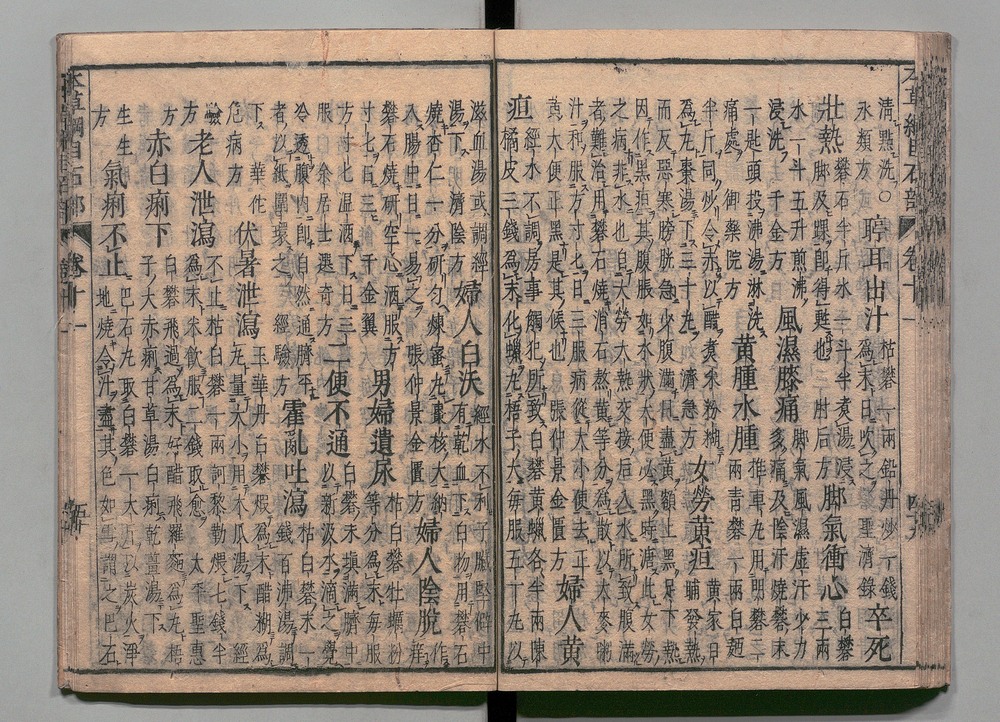 清點洗○聤耳出汁枯礬一兩鉛丹炒一錢
爲末日吹之聖濟錄卒死
壯熱礬石半斤水一斗半煮湯浸脚及踝卽得甦也肘后方脚氣衝心白礬三兩
水一斗五升煎沸浸洗千金方風濕膝痛脚氣風濕虛汗少力多痛及陰汗燒礬末
一匙頭投沸湯淋洗痛處御藥院方黃腫水腫推車丸用明礬二兩青礬一兩白麪
半斤同炒令赤以醋煮米粉糊爲丸棗湯下三十丸濟急方女勞黃疸黃家日晡發熱
而反惡寒膀胱急少腹滿目盡黃額上黑足下熱
因作黑疸腹脹如水狀大便必黑時溏此女勞
之病非水也自大勞大熱交接后入水所致腹滿
者難治用礬石燒消石熬黃等分爲散以大麥粥
汁和服方寸匕日三服病從大小便去正
黃大便正黑是其候也張仲景金匱方婦人黃
經水不調房事觸犯所致白礬黃蠟各半兩陳
疸橘皮三錢爲末化蠟丸梧子大每服五十丸以
滋血湯或調經湯下濟陰方婦人白沃經水不利子臟堅僻中有乾血下白物用礬石
燒杏仁一分研勻煉蜜丸棗核大納
入腸中日一易之張仲景金匱方婦人陰脫作痒
礬石燒研空心酒服方寸匕日三千金翼男婦遺尿枯白礬牡蠣粉等分爲末每服
方寸匕溫酒下日三
服白余居士選奇方二便不通白礬末塡滿臍中以新汲水滴之覺
冷透腹內卽自然通臍平
者以紙圍環之經驗方霍亂吐瀉枯白礬末一錢百沸湯調
下華佗危病方伏暑泄瀉玉華丹白礬煆爲末醋糊爲丸量大小用木瓜湯下
經驗方老人泄瀉不止枯白礬一兩訶黎勒煨七錢半爲末米飮服二錢取愈太平聖惠
方赤白痢下白礬飛過爲末好醋飛羅麪爲丸梧子大赤痢甘草湯白痢乾薑湯下
生生方氣痢不止巴石丸取白礬一大斤以炭火淨地燒令汁盡其色如雪謂之巴石
本草綱目石部
卷十一